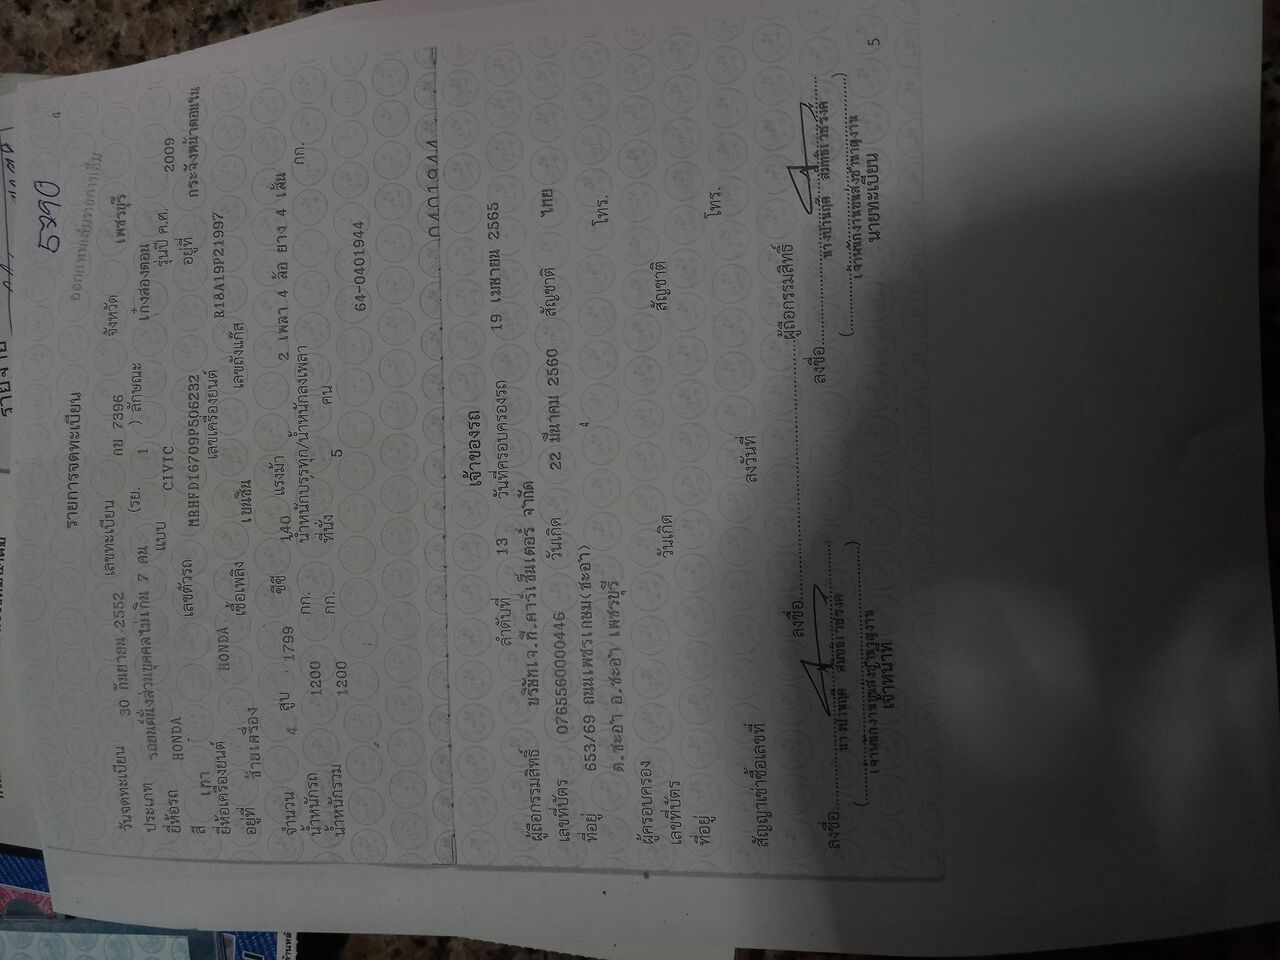 5ขค0
4
รายการจดทะเบียน
วันจดทะเบียน 30 กันยายน 2552 เลขทะเบียน กบ 7396 จังหวัด เพชรบุรี
ประเภท รถยนต์นั่งส่วนบุคคลไม่เกิน 7 คน (รย. 1 ) ลักษณะ เก๋งสองตอน
ยี่ห้อรถ HONDA แบบ CIVIC รุ่นปี ค.ศ. 2009
สี เทา เลขตัวรถ MRHFD16709P506232 อยู่ที่ กระจังหน้าตอนใน
ยี่ห้อเครื่องยนต์ HONDA เลขเครื่องยนต์ R18A19P21997
อยู่ที่ ซ้ายเครื่อง เชื้อเพลิง เบนซิน เลขถังแก๊ส
จำนวน 4 สูบ 1799 ซีซี 140 แรงม้า 2 เพลา 4 ล้อ ยาง 4 เส้น
น้ำหนักรถ 1200 กก. น้ำหนักบรรทุก/น้ำหนักลงเพลา กก.
น้ำหนักรวม 1200 กก. ที่นั่ง 5 คน
64-0401944
0401944
เจ้าของรถ
ลำดับที่ 13 วันที่ครอบครองรถ 19 เมษายน 2565
ผู้ถือกรรมสิทธิ์ บริษัทเจ.ที.คาร์เซ็นเตอร์ จำกัด
เลขที่บัตร 0765560000446 วันเกิด 22 มีนาคม 2560 สัญชาติ ไทย
ที่อยู่ 653/69 ถนนเพชรเกษม(ชะอำ) โทร.
ต.ชะอำ อ.ชะอำ เพชรบุรี
ผู้ครอบครอง
เลขที่บัตร วันเกิด สัญชาติ
ที่อยู่ โทร.
สัญญาเช่าซื้อเลขที่ ลงวันที่
ลงชื่อ ผู้ถือกรรมสิทธิ์
ลงชื่อ ลงชื่อ
เจ้าหน้าที่ นายทะเบียน
5